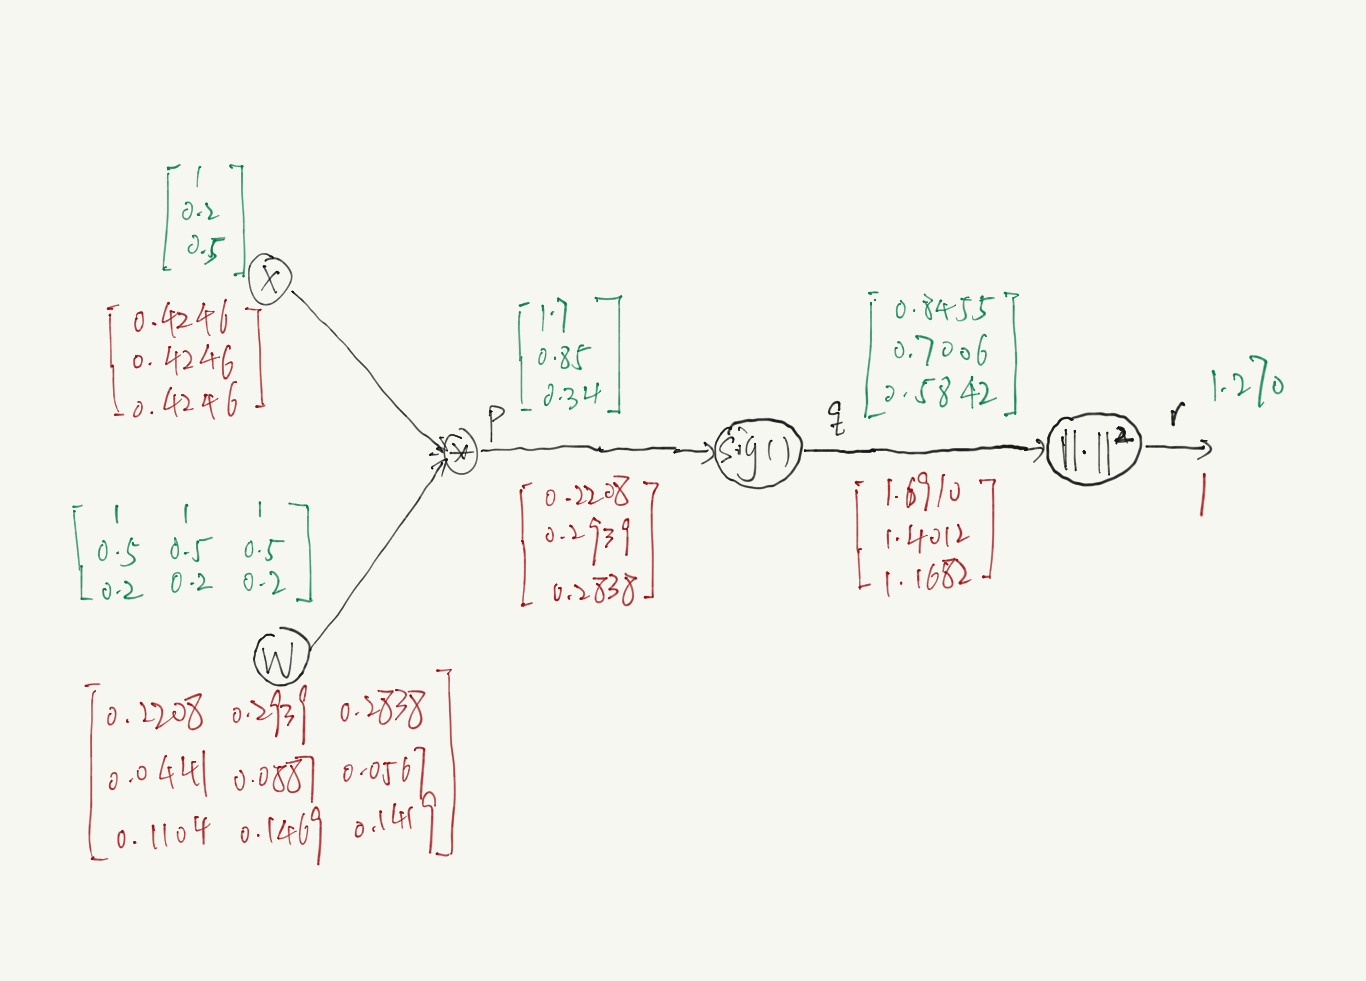 1
0.2
0.5
X
0.4246
0.4246
0.4246
1 1 1
0.5 0.5 0.5
0.2 0.2 0.2
W
0.2208 0.2939 0.2838
0.0441 0.0887 0.0567
0.1104 0.1469 0.1419
*
P
1.7
0.85
0.34
0.2208
0.2939
0.2838
sig()
q
0.8455
0.7006
0.5842
1.6910
1.4012
1.1682
||·||²
r
1.270
1